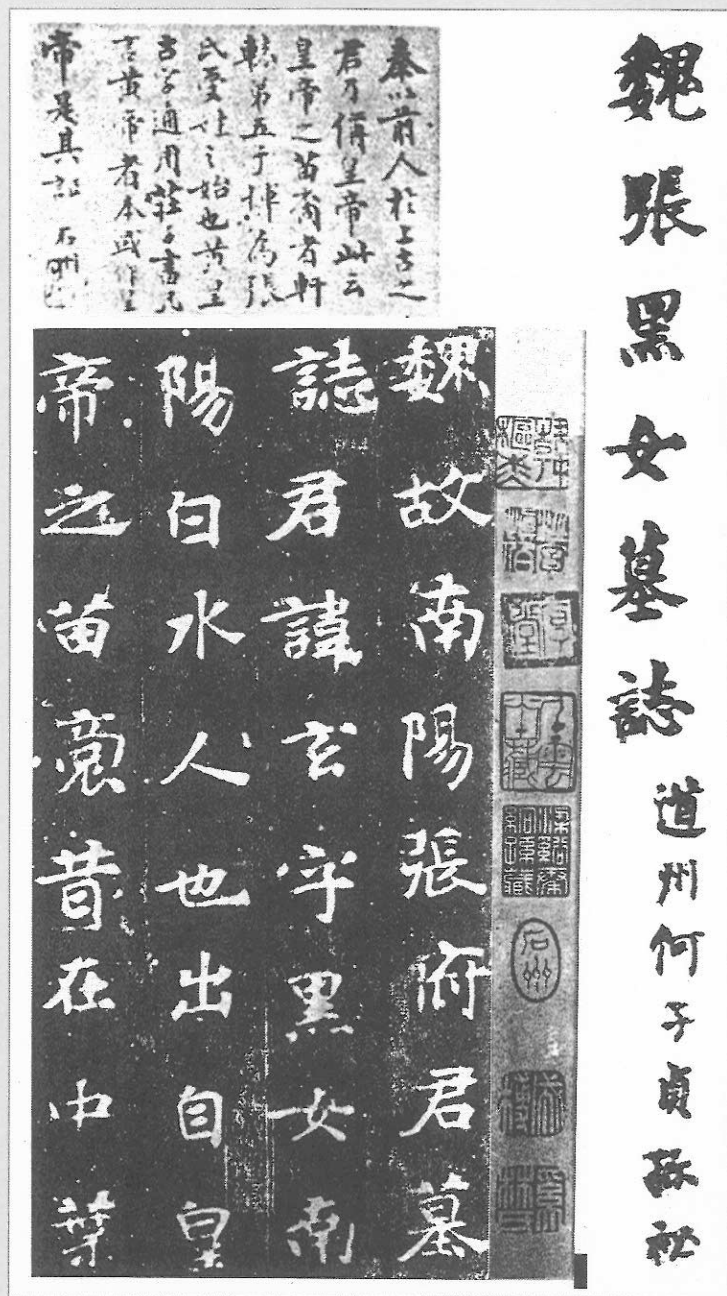 魏張黑女墓誌
道州何子貞珎祕
石州
秦以前人於上古之
君乃偁皇帝此云
皇帝之苗裔者軒
轅第五子揮為張
氏受姓之始也黃皇
古字通用莊子書凡
言黃帝者本或作皇
帝是其証 石州
魏故南陽張府君墓
誌君諱玄字黑女南
陽白水人也出自皇
帝之苗裔昔在中葉